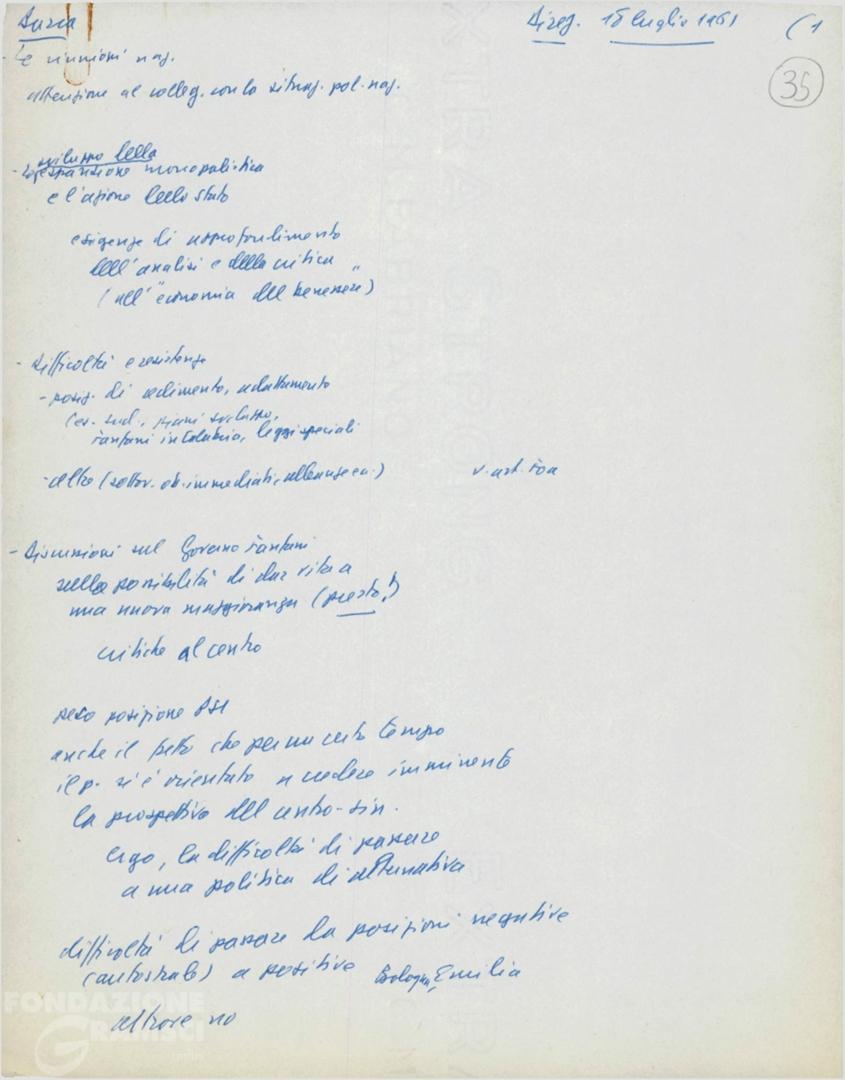 Direz. 18 luglio 1961 (1
35
- Le riunioni naz.
attenzione al colleg. con la situaz. pol. naz.
sviluppo della
- espansione monopolistica
e l'azione dello stato
esigenze di approfondimento
dell'analisi e della critica
(all'"economia del benessere")
- difficoltà e resistenze
- posiz. di cedimento, adattamento
(es. sud, piani sviluppo,
Fanfani in Calabria, leggi speciali
- altre (sottov. ob. immediati, alleanze ecc.) v. art. Foa
- discussioni sul Governo Fanfani
sulla possibilità di dar vita a
una nuova maggioranza (presto!)
critiche al centro
peso posizione PSI
anche il fatto che per un certo tempo
il p. si è orientato a vedere imminente
la prospettiva del centro-sin.
ergo, la difficoltà di passare
a una politica di alternativa
difficoltà di passare da posizioni negative
(autostrade) a positive Bologna, Emilia
altrove no
FONDAZIONE
GRAMSCI